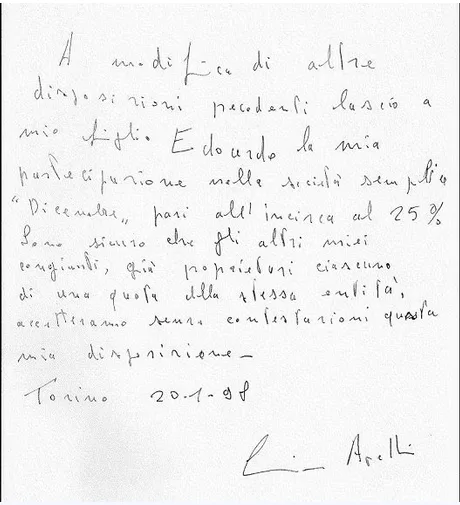 A modifica di altre
disposizioni precedenti lascio a
mio figlio Edoardo la mia
partecipazione nella società semplice
"Dicembre" pari all'incirca al 25%
Sono sicuro che gli altri miei
congiunti, già proprietari ciascuno
di una quota della stessa entità,
accetteranno senza contestazioni questa
mia disposizione -
Torino 20-1-98